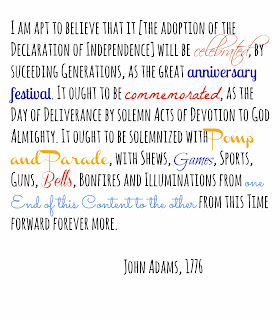 I am apt to believe that it [the adoption of the
Declaration of Independence] will be celebrated, by
suceeding Generations, as the great anniversary
festival. It ought to be commemorated, as the
Day of Deliverance by solemn Acts of Devotion to God
Almighty. It ought to be solemnized with Pomp
and Parade, with Shews, Games, Sports,
Guns, Bells, Bonfires and Illuminations from one
End of this Content to the other from this Time
forward forever more.
John Adams, 1776